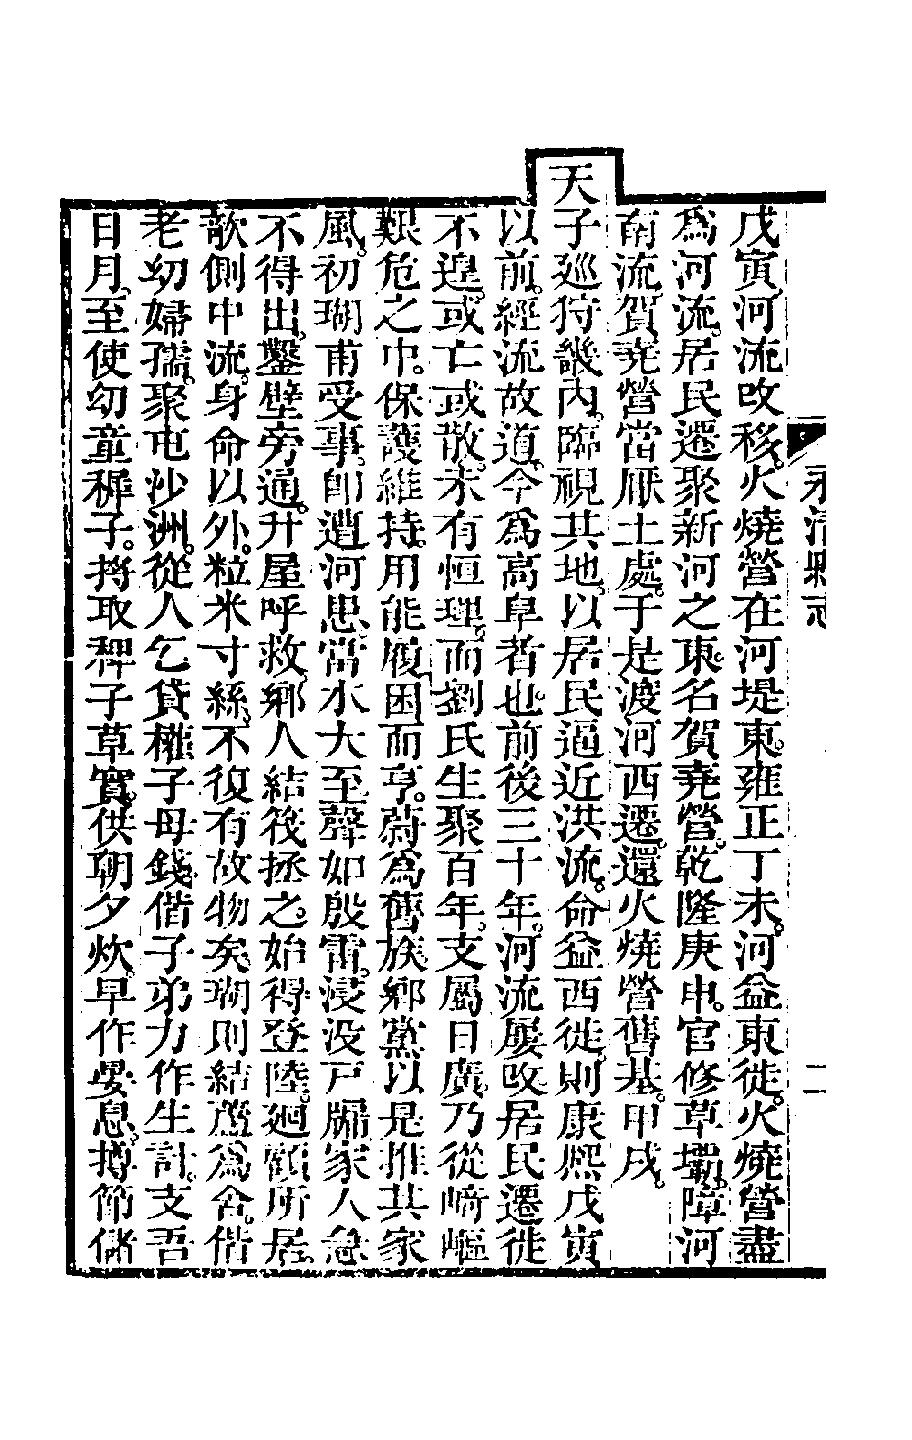 永清縣志
二
戊寅河流改移。火燒營在河堤東。雍正丁未。河益東徙。火燒營盡
為河流。居民遷聚新河之東。名賀堯營。乾隆庚申。官修草壩。障河
南流。賀堯營當厭土處。于是渡河西遷。還火燒營舊基。甲戌。
天子廵狩畿內。臨視其地。以居民逼近洪流。命益西徙。則康熙戊寅
以前。經流故道。今為高阜者也。前後三十年。河流屢改。居民遷徙
不遑。或亡或散。未有恒理。而劉氏生聚百年。支屬日廣。乃從﨑嶇
艱危之中。保護維持。用能履困而亨。蔚為舊族。鄉黨以是推其家
風。初瑚甫受事。卽遭河患。當水大至。聲如殷雷。浸没戸牖。家人急
不得出。鑿壁旁通。升屋呼救。鄉人結筏拯之。始得登陸。廻顧所居。
欹側中流。身命以外。粒米寸絲。不復有故物矣。瑚則結蘆為舍。偕
老幼婦孺。聚屯沙洲。從人乞貸。權子母錢。偕子弟力作生計。支吾
日月。至使幼童稺子。捋取稗子草實。供朝夕炊。早作晏息。撙節儲